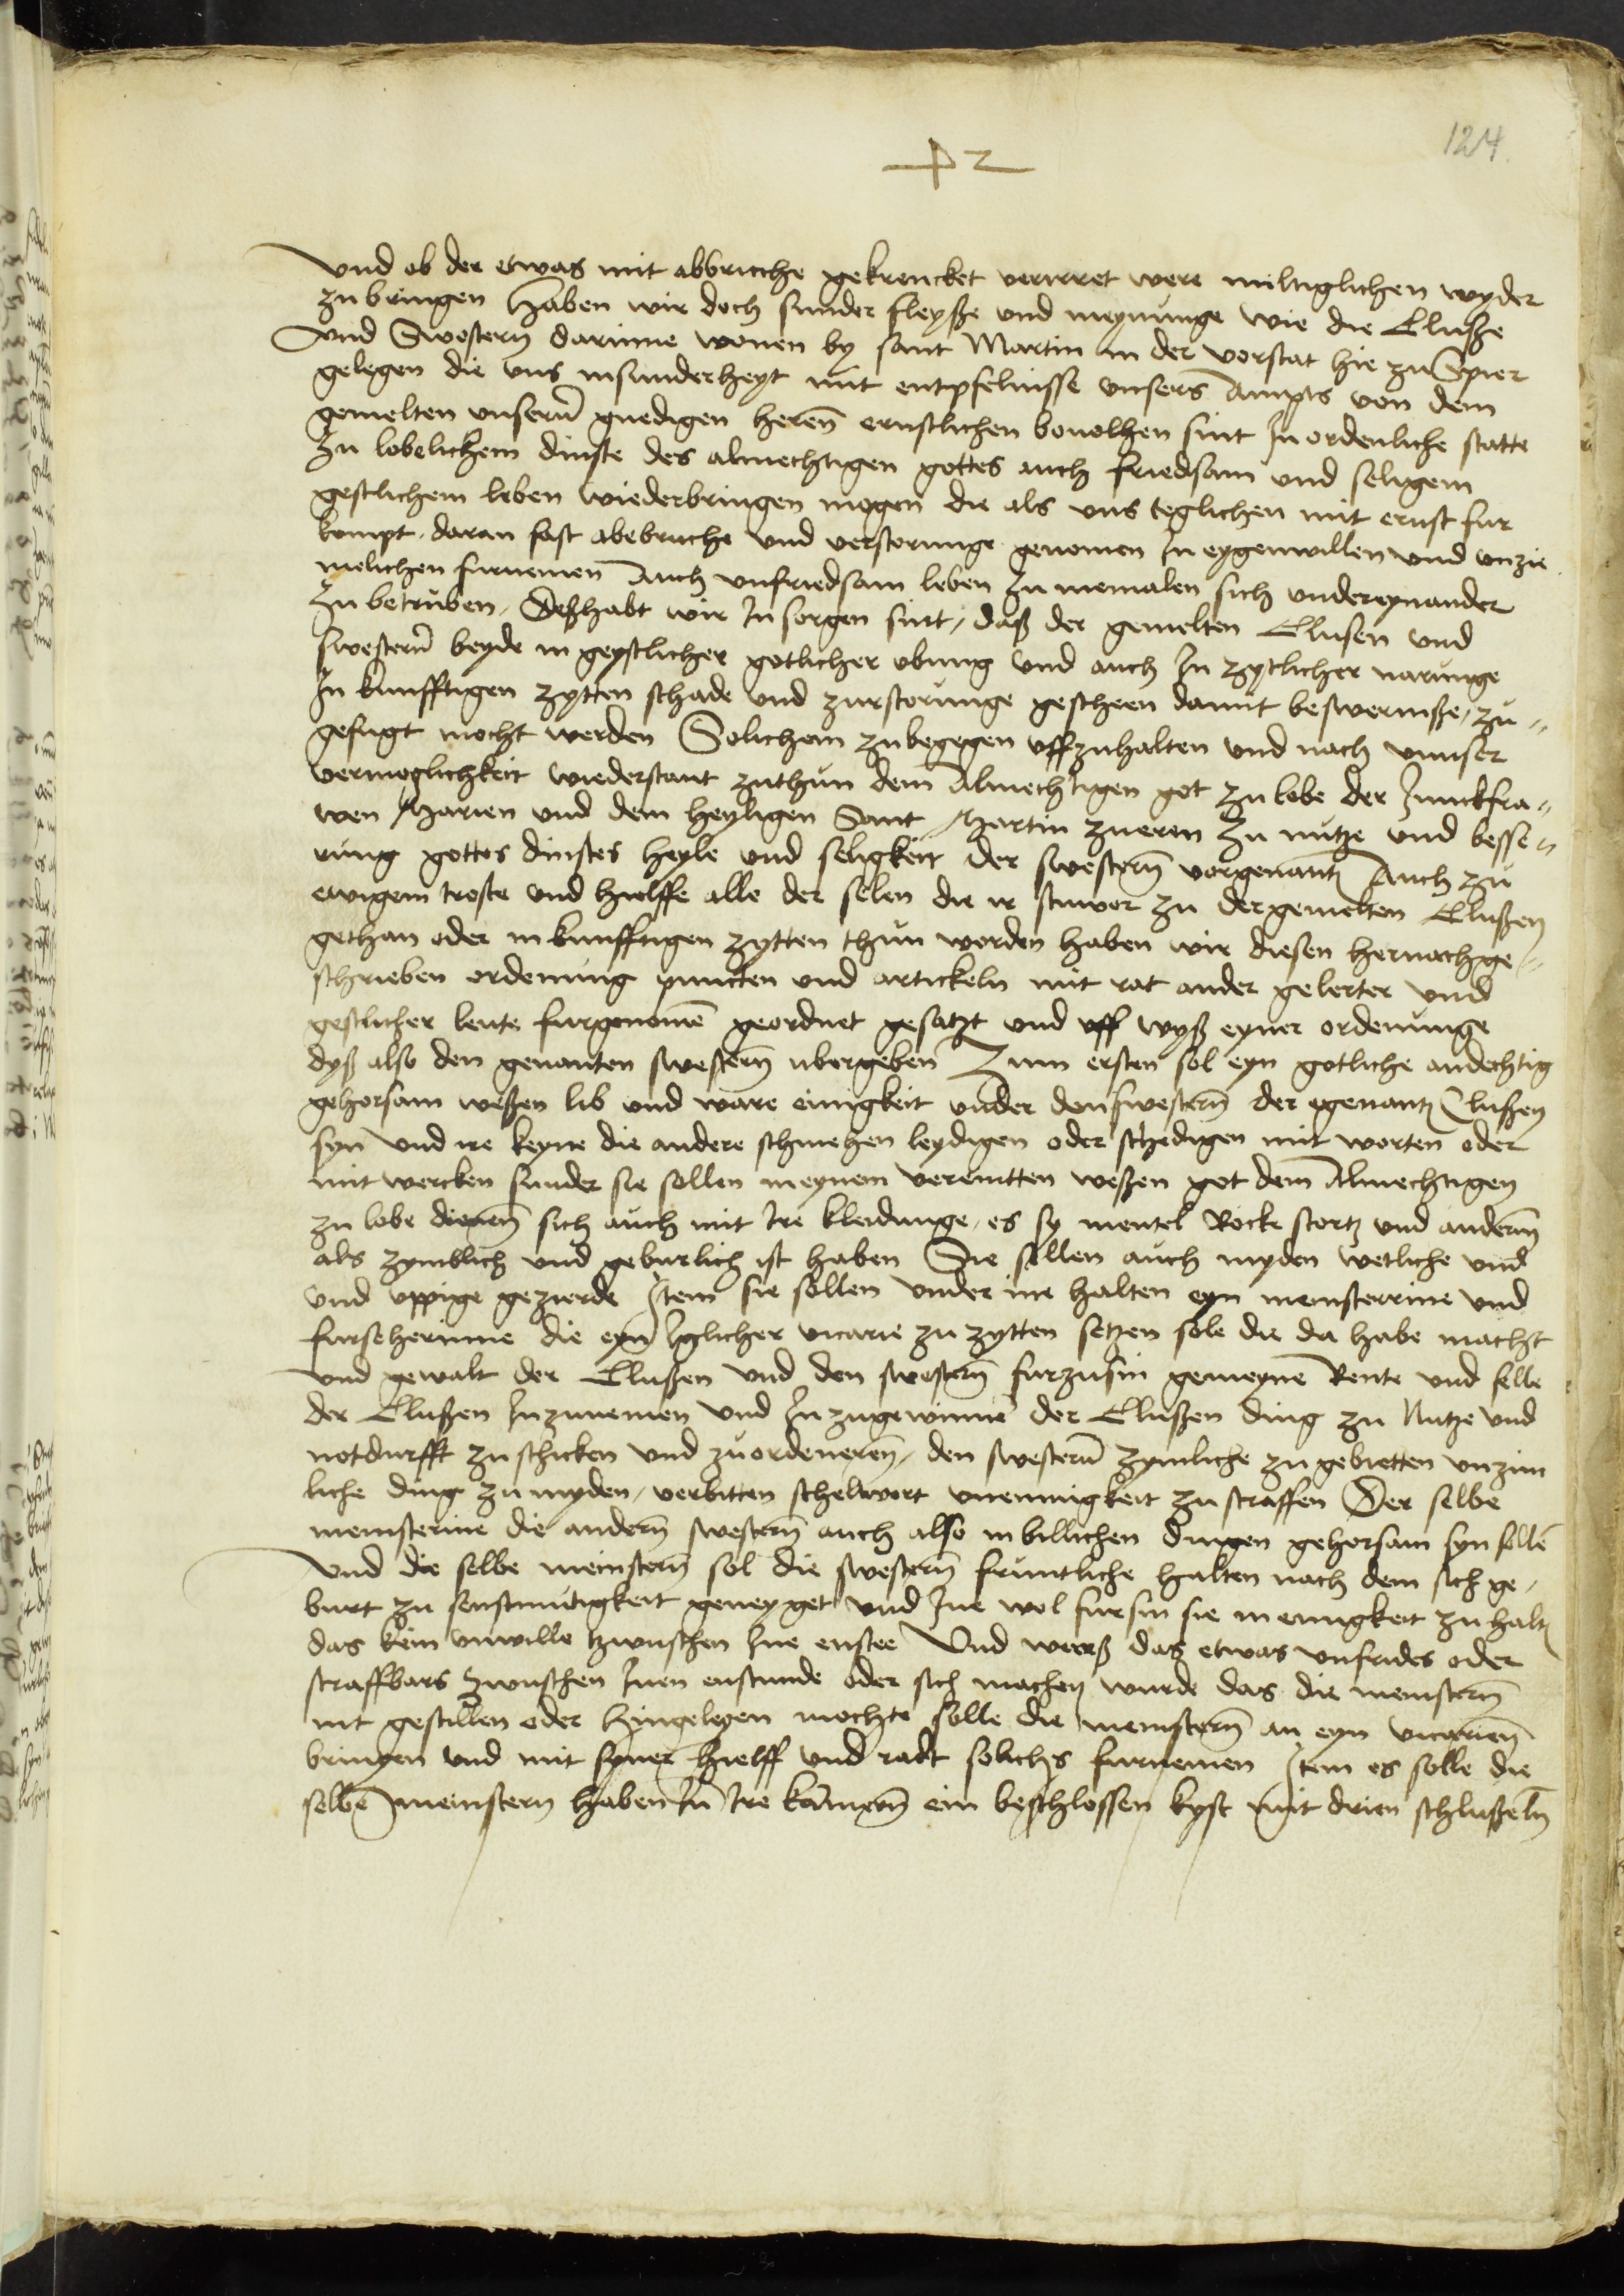 124
Und ob der etwas mit abbruche gekrencket verirret were miltiglichen wyder
zu bringen Haben wir doch sunder fleyße und meynunge wie die Clusße
Und Swestern darinne wonen by sant Martin in der vorstat hie zu Spier
gelegen die uns insunderheyt mit entpfelnisse unsers Ampts von dem
gemelten unserm gnedigen heren ernstlichen bevolhen sint In ordenliche statte
zu lobelichem dinste des almechtigen gottes auch friedsam und seligem
gestlichem leben wiederbringen mogen die als uns teglichen mit ernst fur
kompt daran fast abebruche und verstorunge genomen In eygenwillen und unzie
melichen furnemen Auch unfriedsam leben zu mermalen sich undereynander
zu betruben, Deßhabt wir In sorgen sint, daß der gemelten Clusen und
swestern beyde in geystlicher gotlicher ubung und auch In zytlicher narunge
In kunfftigen zytten schade und zurstorunge gescheen damit beswerniße, zu„
gefugt mocht werden Solichem zu begegen uffzuhalten und nach unnser
vermoglichkeit wiederstant zuthun dem Almechtigen got zu lobe der Junckfra„
wen Marien und dem heyligen Sant Martin zueren zu nutze und besse„
rung gottes dinstes heyle und seligkeit der swestern vorgenant Auch zu
ewigem troste und hielffe alle der selen die ir stuwer zu der gemelten Clußen
gethan oder in kunfftigen zytten thun werden haben wir diesen hernachge„
schrieben ordenung puncten und artickeln mit rat ander gelerter und
gestlicher leute furgenomen geordnet gesatzt und uff wyß eyner ordenunge
dyß also den genanten swestern ubergeben Zum ersten sol eyn gotliche andechtig
gehorsam weßen lib und ware einigkeit under den swestern der egenant Clußen
syn und ire keyne die andere schmehen leydigen oder schedigen mit worten oder
mit wercken sunder sie sollen in eynem vereintten weßen got dem Almechtigen
zu lobe dienen sich auch mit Ire kleidunge, es sy mentel Rocke stortz und anderm
als zymblich und geburlich ist haben Sie sollen auch myden wetliche und
und uppige gezierde Item sie sollen under ine halten eyn meinsterrine und
furseherinne die eyn Iglicher vicarie zu zytten setzen sole die da habe macht
und gewalt der Clußen und den swestern furzusin gemeyne Rente und felle
der Clußen Inzunemen und Inzugewinne der Clußen ding zu Nutze und
notdurfft zu schicken und zu ordeneren, den swestern zymliche zu gebietten unzim
liche ding zu myden, verbitten scheltwort uneinigkeit zu straffen Der selbe
meinsterine die andern swestern auch also in billichen dingen gehorsam syn sollen
Und die selbe meinstern sol die swestern fruntliche halten nach dem sich ge„
burt zu senftmutigkeit geneyget und Ine wol fursin sie in einigkeit zu halt
das kein unwille tzwuschen Ine enstee Und weerß das etwas unfrides oder
straffbars zwuschen Inen enstunde oder sich machen wurde das die meinstern
nit gestillen oder hingelegen mochte solle die meinstern an eyn vicarien
bringen und mit syner hielff und radt solichs furnemen Item es solle die
selben meinstern haben In Ire kamern ein beschlossen kyst mit drien schlußeln